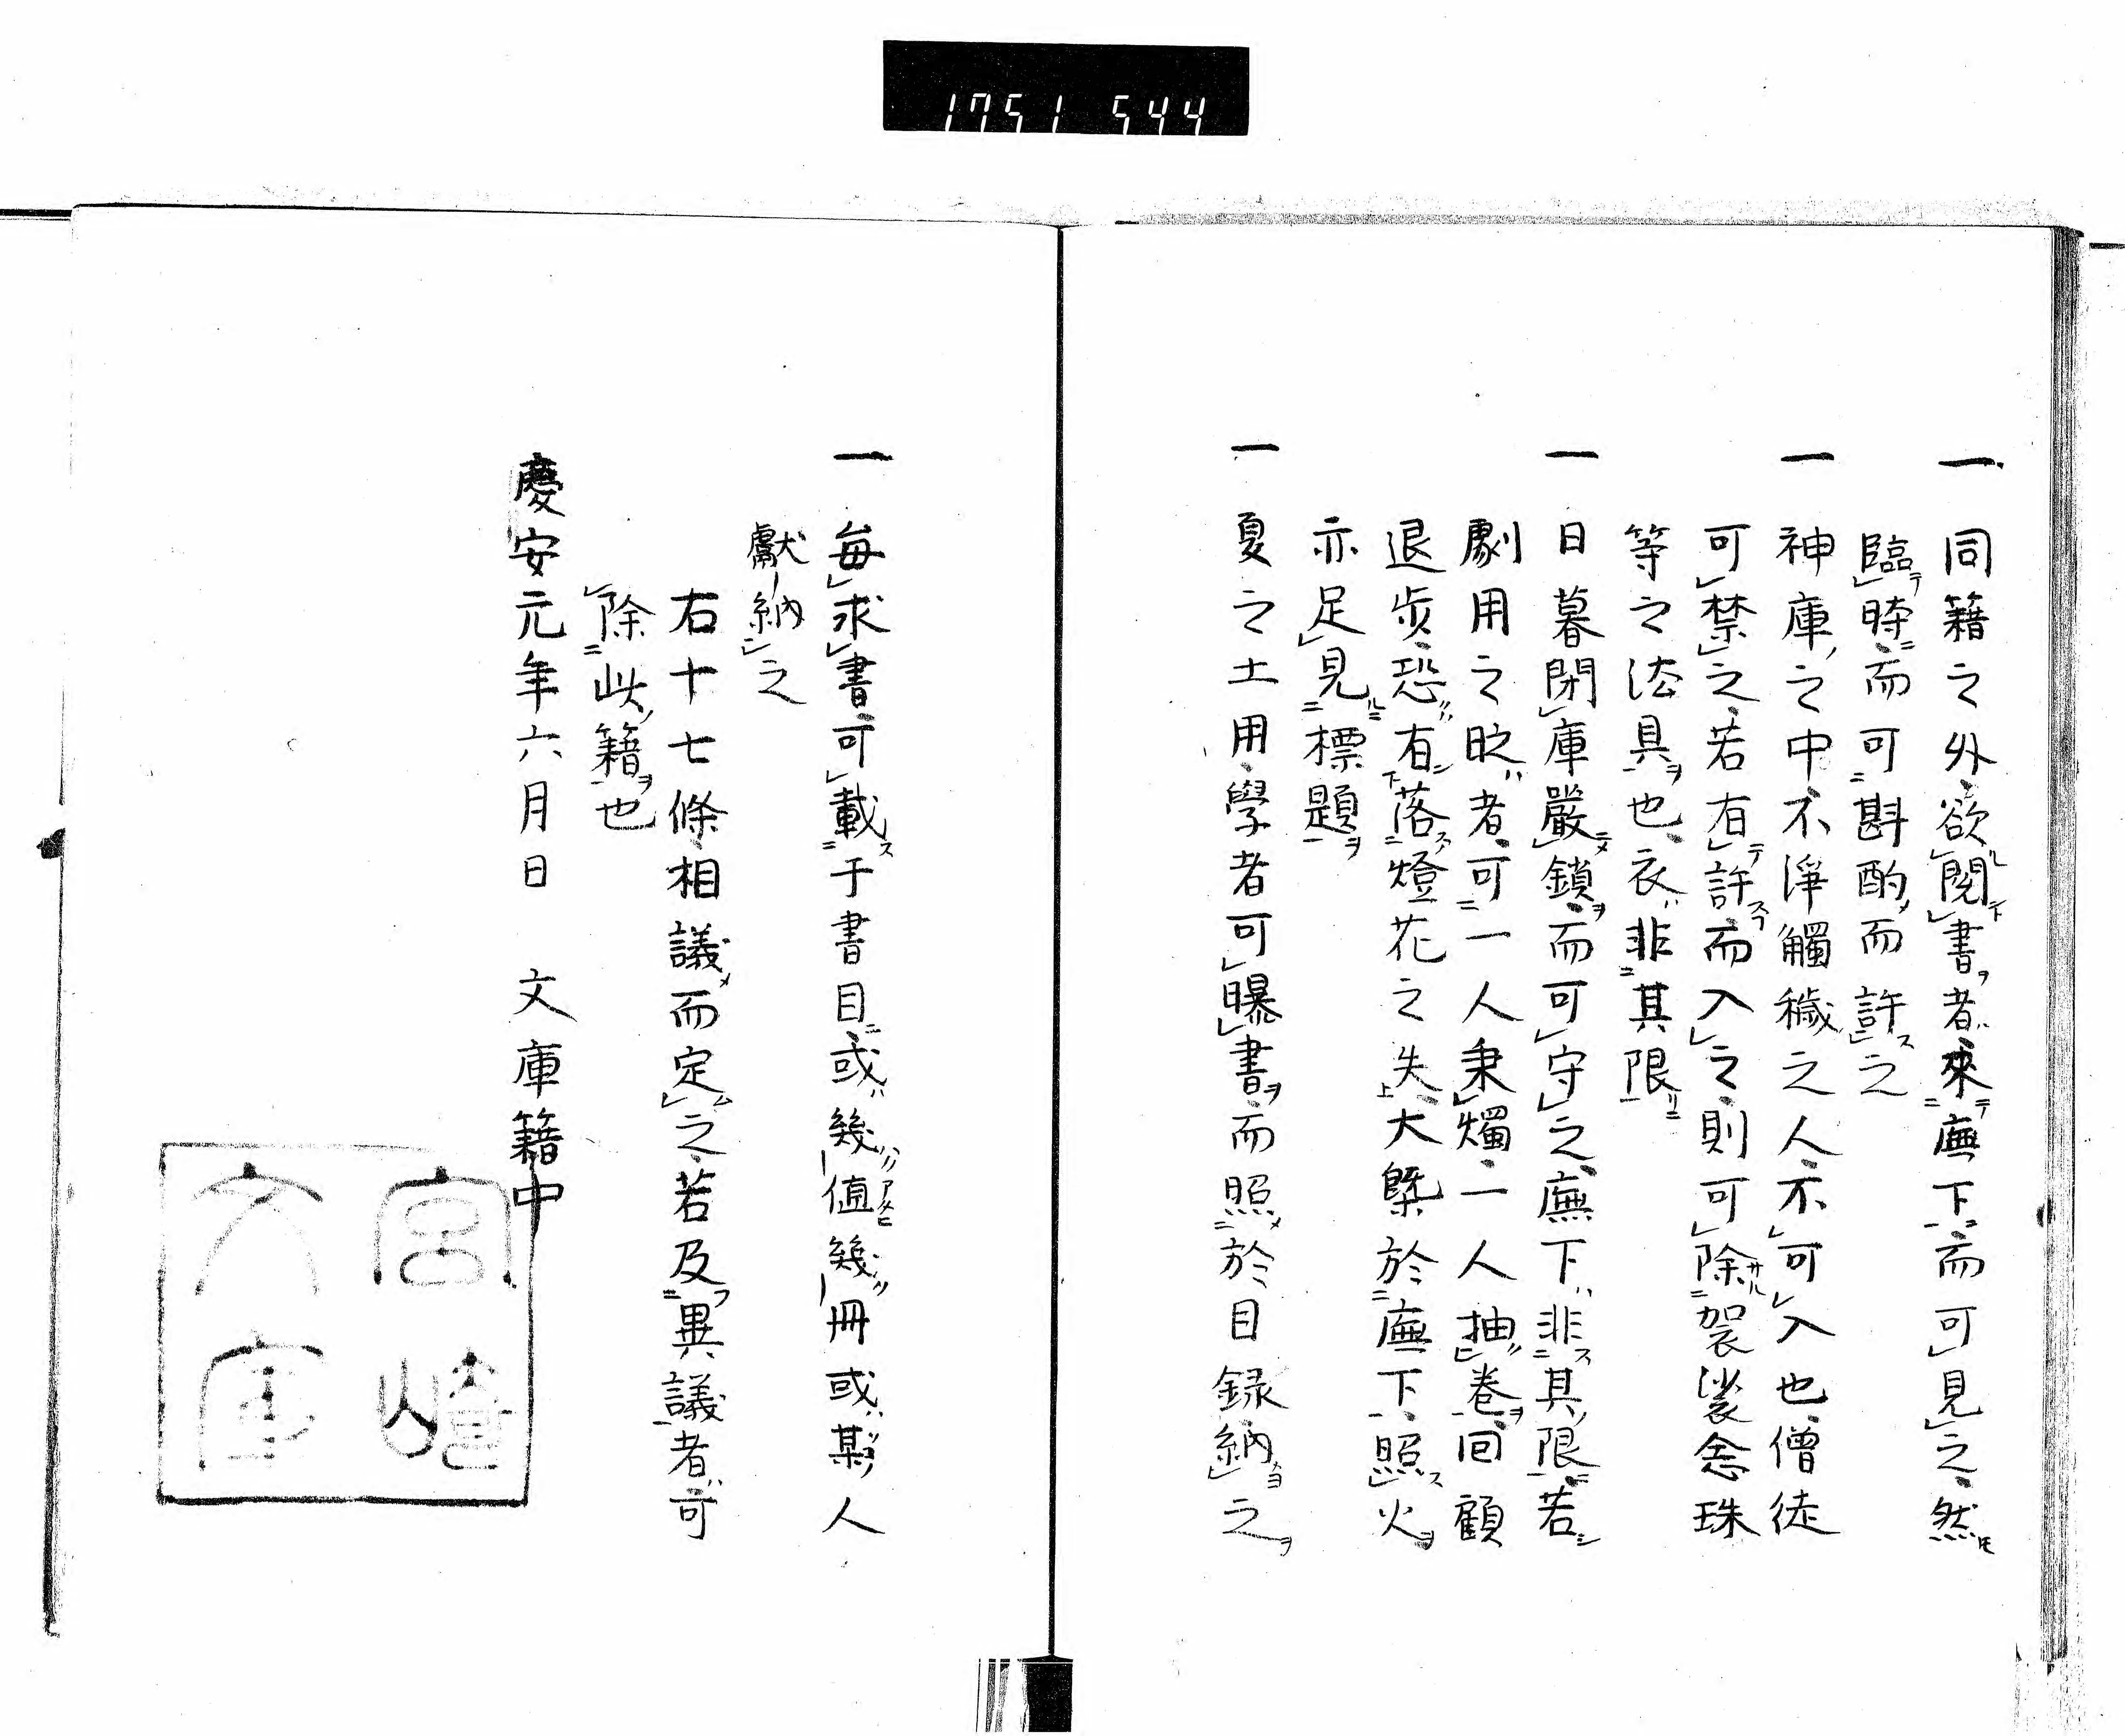 1751 544
一 同籍之外、欲閲書者、來廡下、而可見之、然
臨時、而可斟酌而許之
一 神庫之中、不淨觸穢之人、不可入也、僧徒
可禁之、若有許而入之、則可除袈裟念珠
等之法具也、衣非其限
一 日暮閉庫嚴鎖、而可守之、廡下非其限、若
劇用之時者、可一人秉燭、一人抽卷、回顧
退步、恐有落燈花之失、大槩於廡下、照火
亦足見標題
一 夏之土用、學者可曝書、而照於目録納之
一 每求書、可載于書目、或幾值幾冊、或某人
獻納之
右十七條、相議而定之、若及異議者、可
除此籍也
慶安元年六月日 文庫籍中
宮崎
文庫